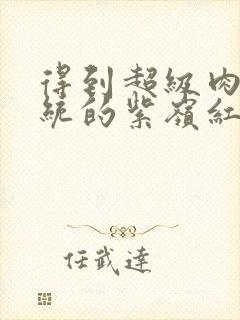 得到超級肉
統的紫嶺紅
任武達